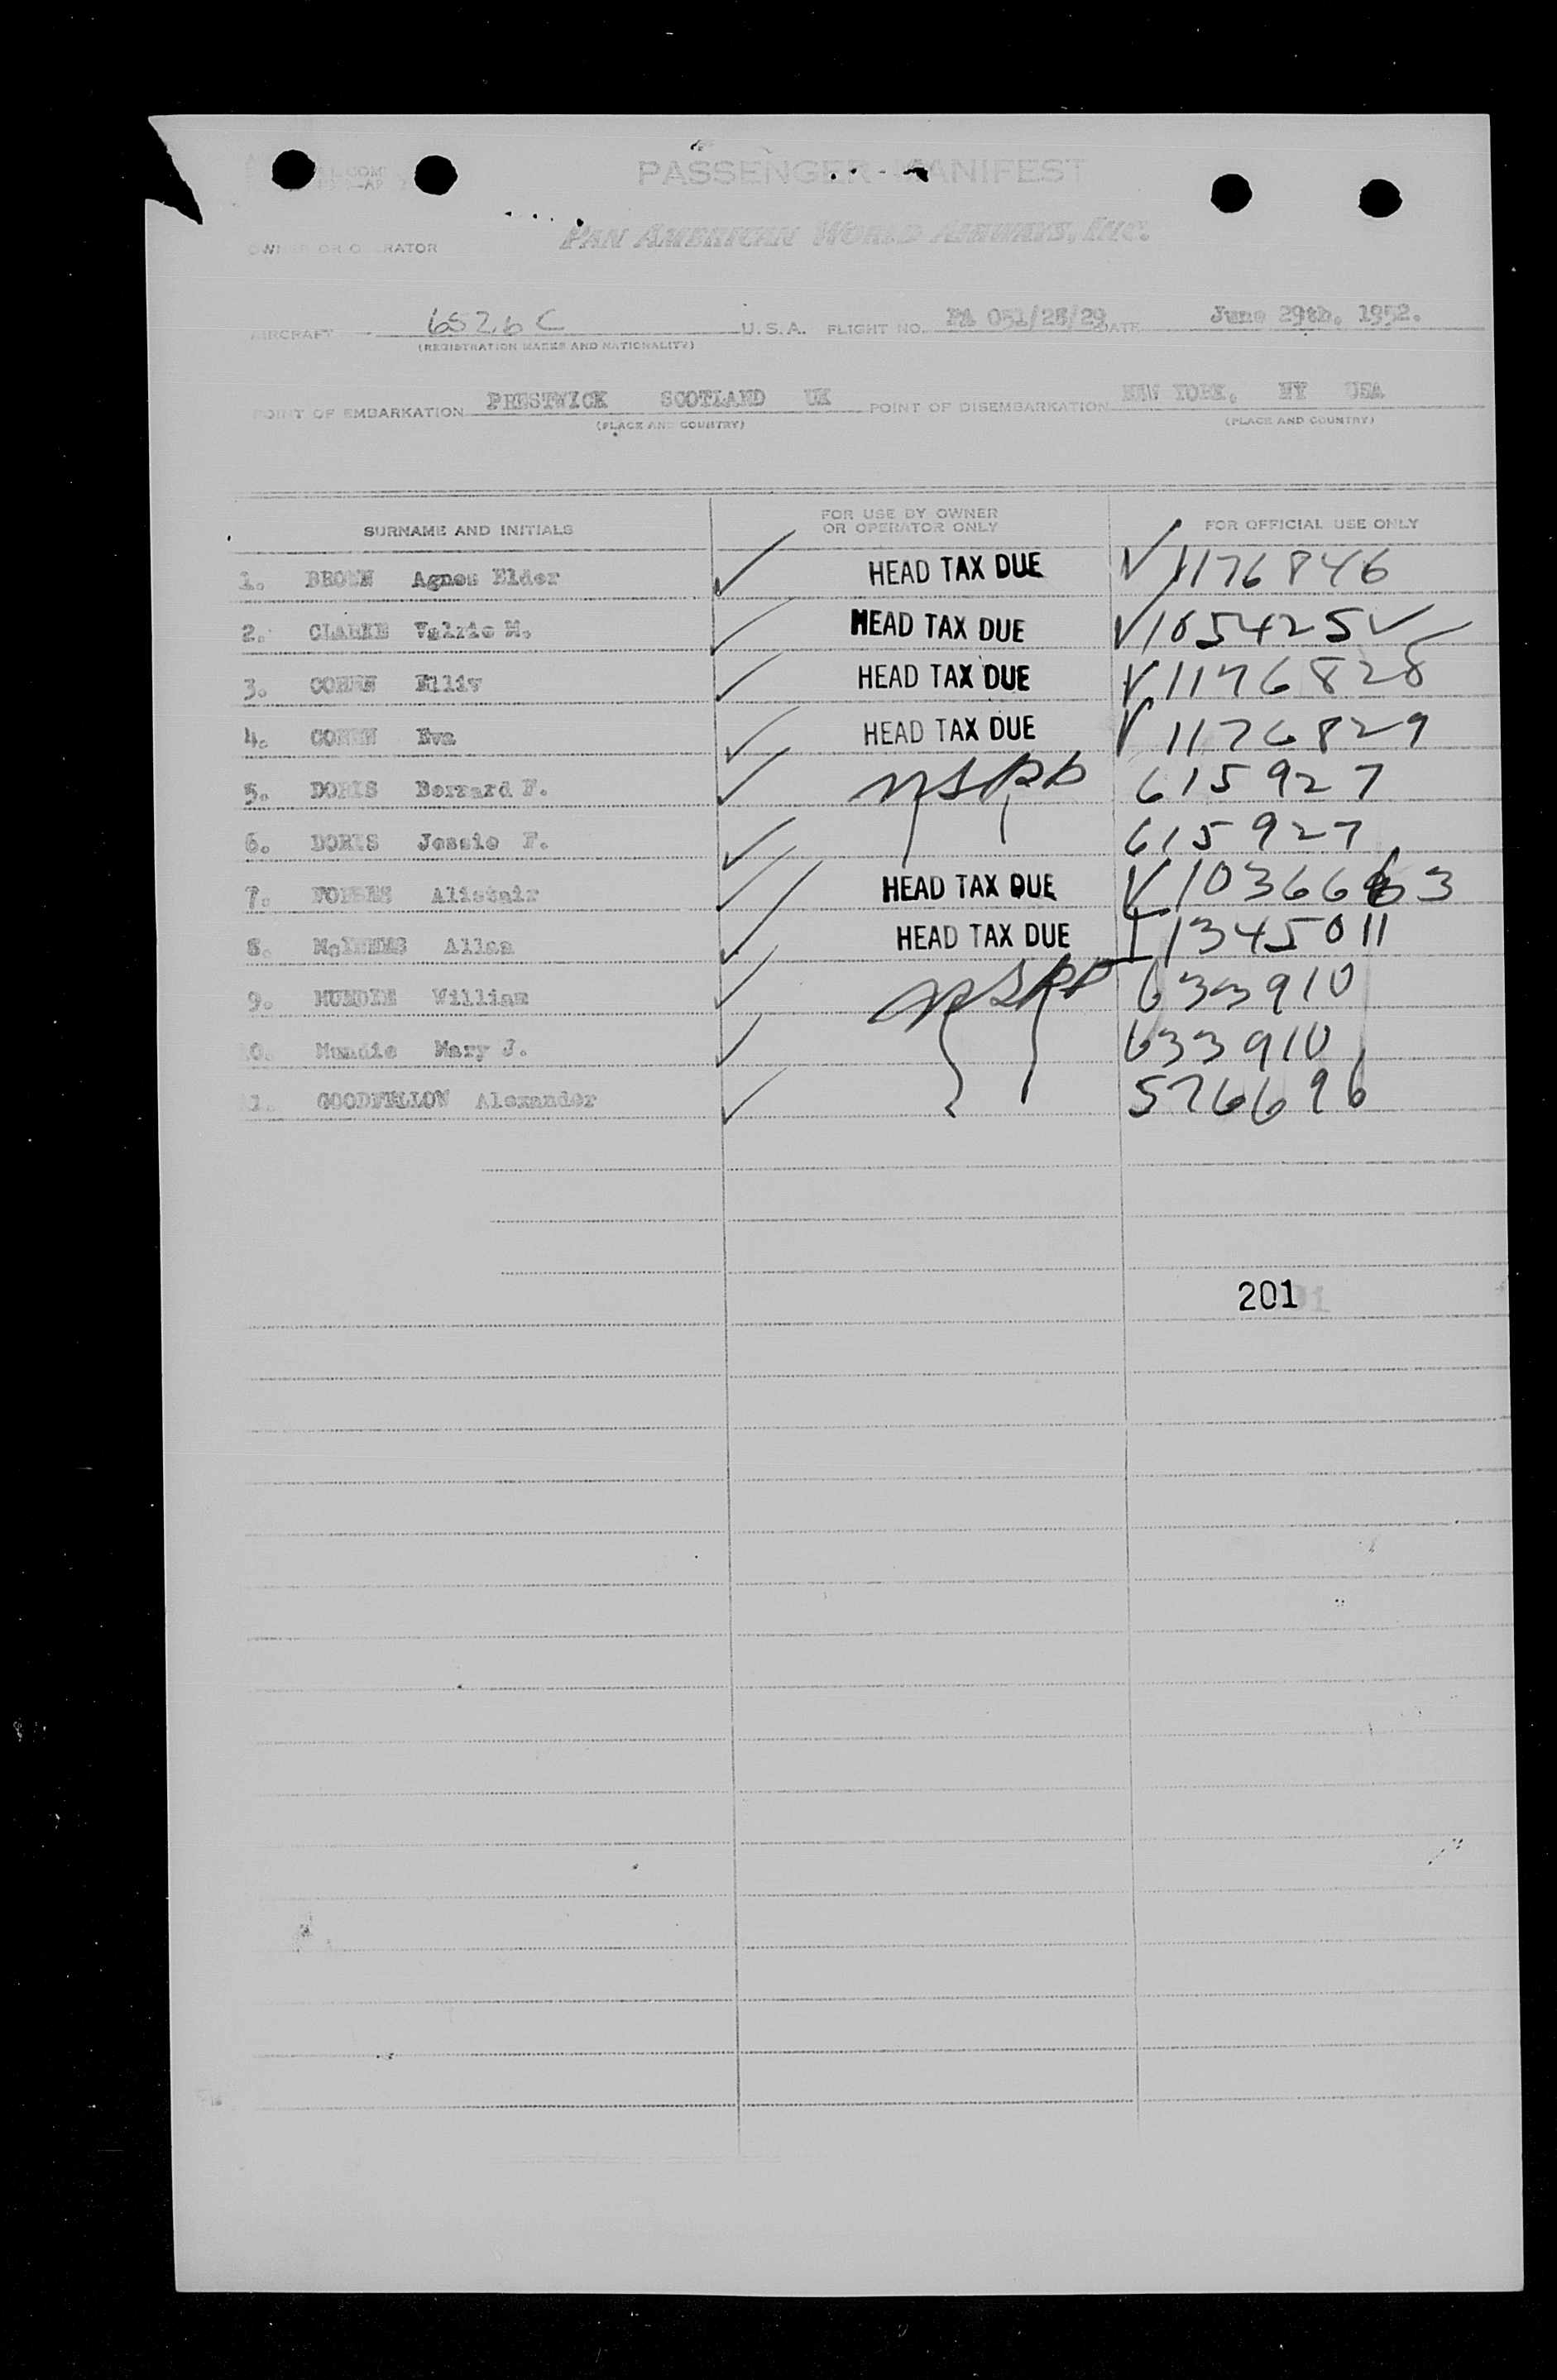 PASSENGER MANIFEST
PAN AMERICAN WORLD AIRWAYS, INC.
OWNER OR OPERATOR
AIRCRAFT 6526C U.S.A. FLIGHT NO. PA 051/28/29 DATE June 29th, 1952.
(REGISTRATION MARKS AND NATIONALITY)
POINT OF EMBARKATION PRESTWICK SCOTLAND UK POINT OF DISEMBARKATION NEW YORK, NY USA
(PLACE AND COUNTRY) (PLACE AND COUNTRY)
SURNAME AND INITIALS FOR USE BY OWNER OR OPERATOR ONLY FOR OFFICIAL USE ONLY
1. BROWN Agnes Elder ✓ HEAD TAX DUE ✓ 1176846
2. CLARKE Valrie M. ✓ HEAD TAX DUE ✓ 1054255 ✓
3. COHEN ✓ HEAD TAX DUE ✓ 1176828
4. COHEN Eva ✓ HEAD TAX DUE ✓ 1176829
5. DORIS Bernard F. ✓ USPP 615927
6. DORIS Jessie F. ✓ 615927
7. FORBES Alistair ✓ HEAD TAX DUE ✓
8. Allen ✓ HEAD TAX DUE 1345011
9. MUNDIE William ✓ USPP 633910
10. Mundie Mary J. ✓ 633910
11. GOODFELLOW Alexander ✓ 576696
201